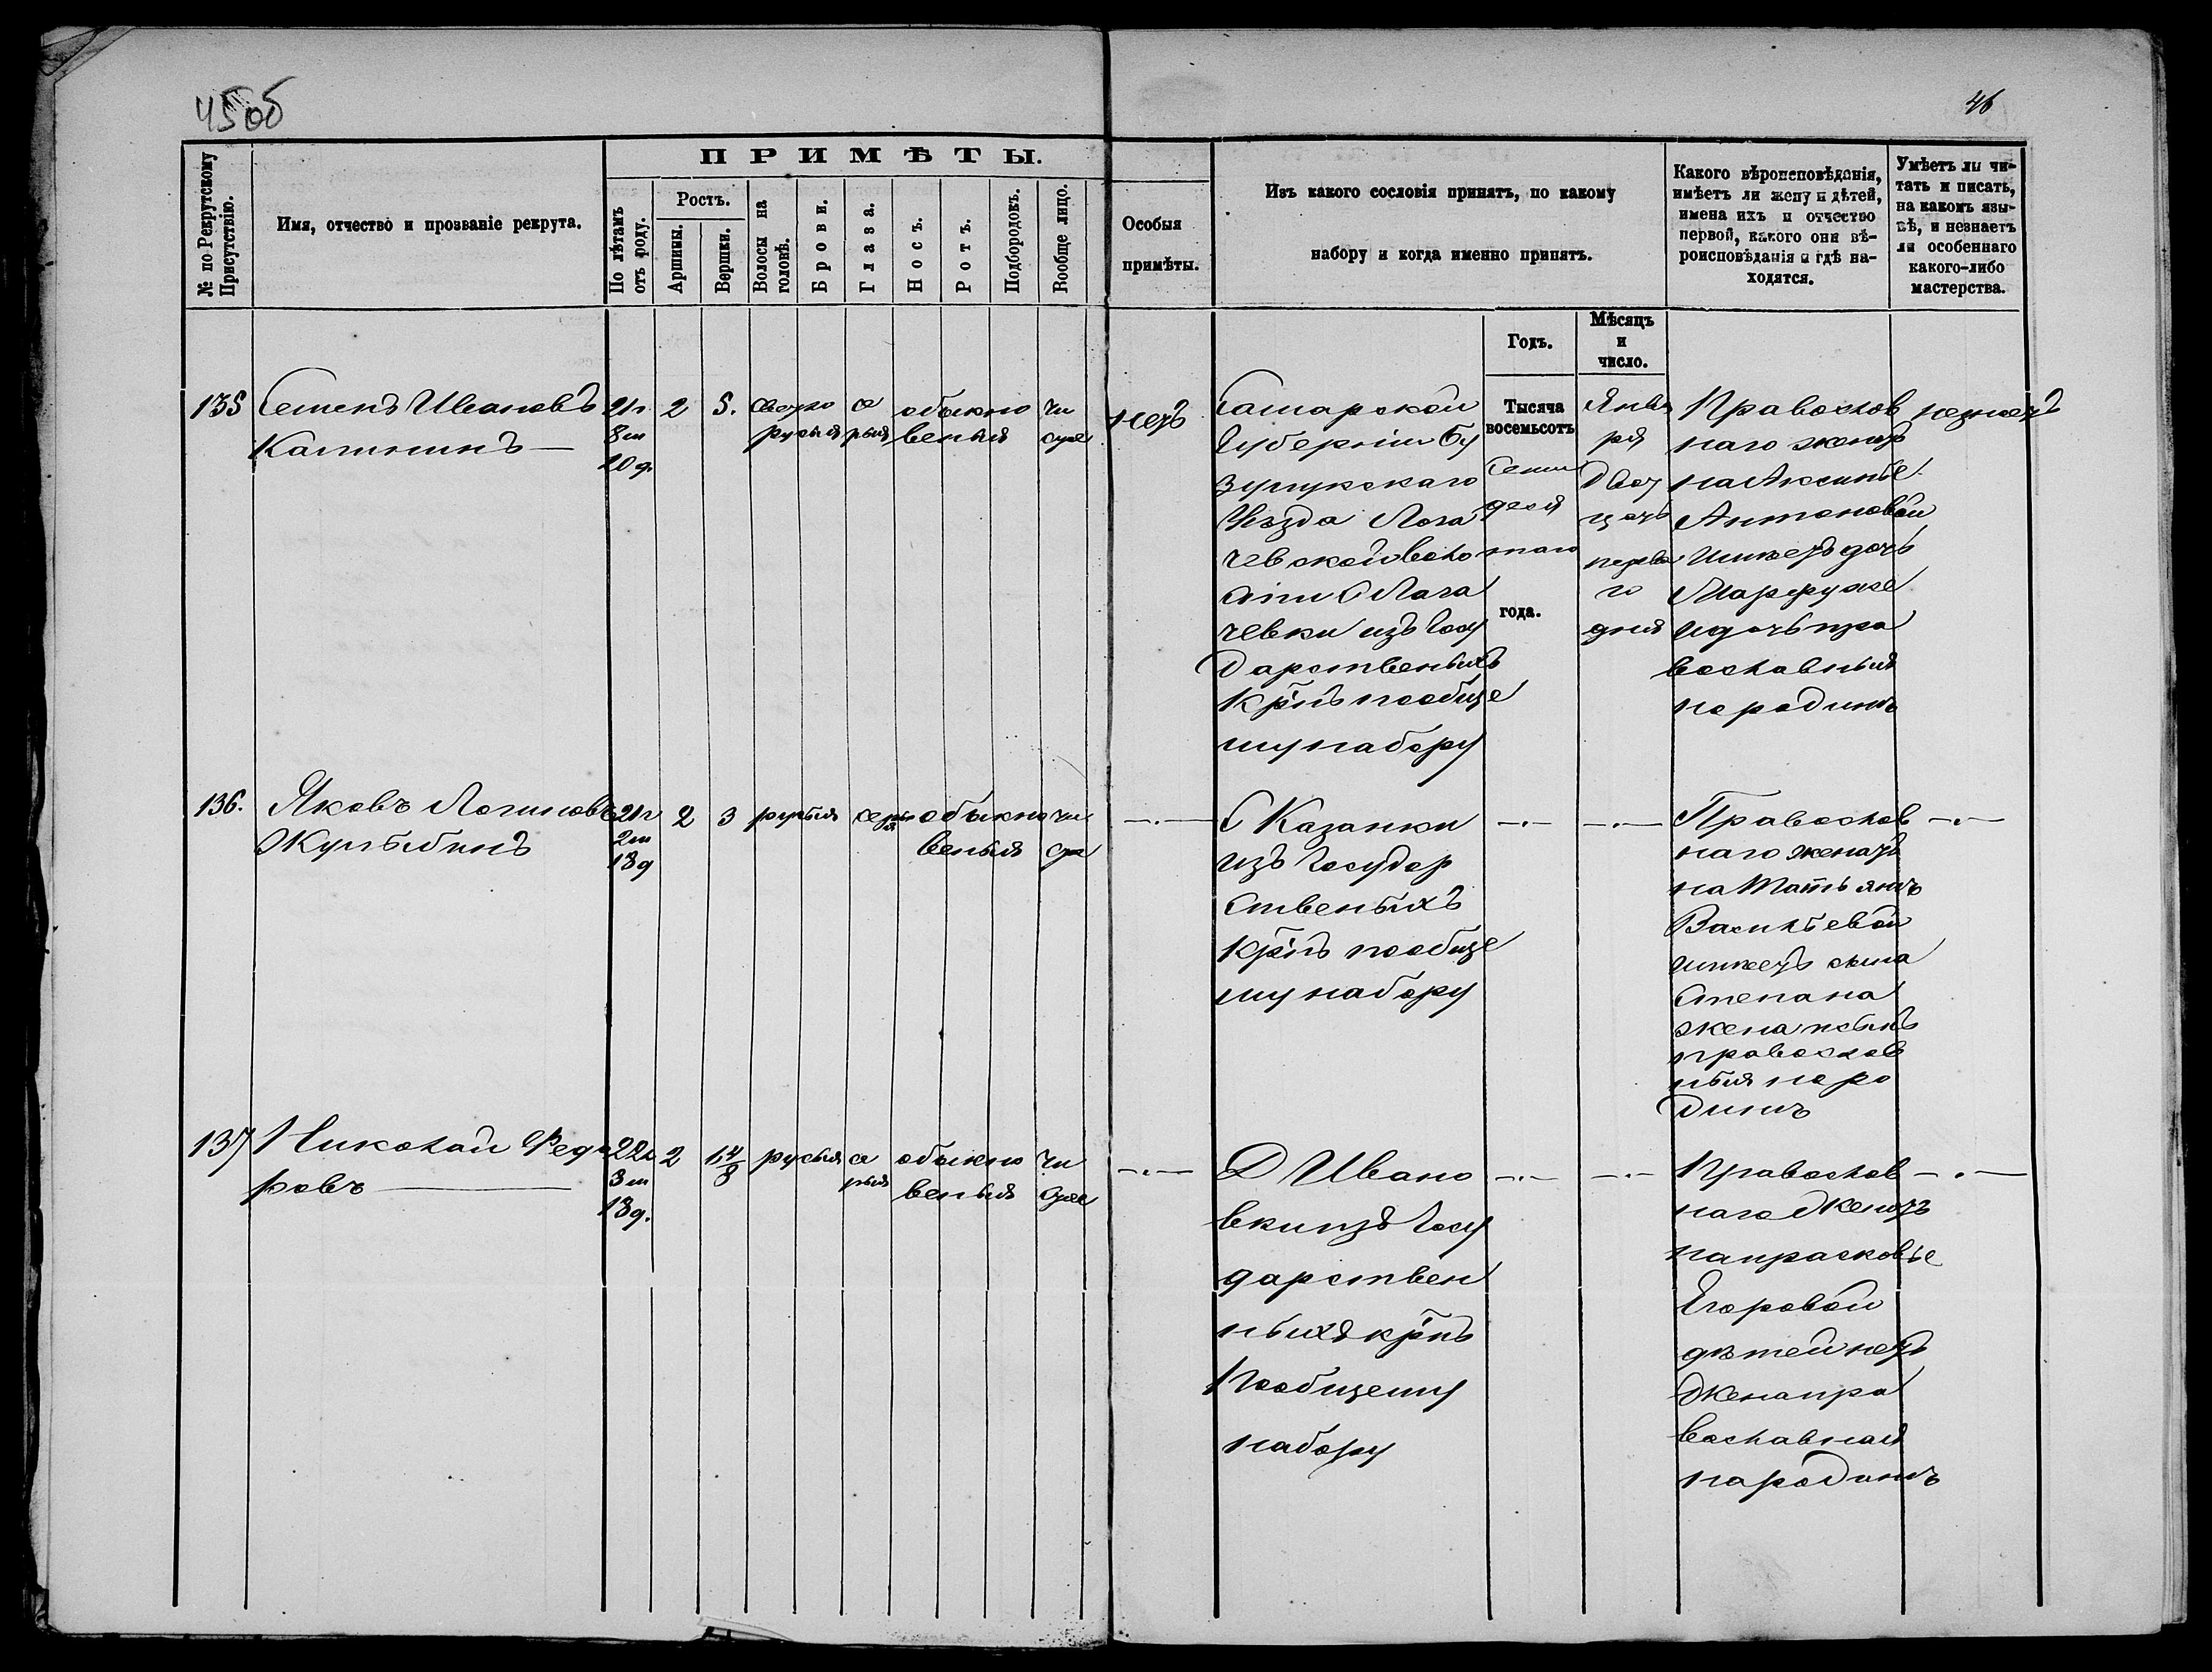 45об
46
№ по Рекрутскому Присутствію.
Имя, отчество и прозваніе рекрута.
ПРИМѢТЫ.
По лѣтамъ отъ роду.
Ростъ.
Аршины.
Вершки.
Волосы на головѣ.
Брови.
Глаза.
Носъ.
Ротъ.
Подбородокъ.
Вообще лицо.
Особыя
примѣты.
Изъ какого сословія принятъ, по какому
набору и когда именно принятъ.
Какого вѣроисповѣданія,
имѣетъ ли жену и дѣтей,
имена ихъ и отчество
первой, какого они вѣ-
роисповѣданія и гдѣ на-
ходятся.
Умѣетъ ли чи-
тать и писать,
на какомъ язы-
кѣ, и незнаетъ
ли особеннаго
какого-либо
мастерства.
Годъ.
Мѣсяцъ
и
число.
135
Семенъ Ивановъ
Калининъ
21г
8м
20д.
2
5.
светло
русыя
се
рыя
обыкно
веныя
чи
стое
нетъ
Самарской
Губерніи Бу
зулукскаго
Уѣзда Лога
чевской воло
сти С Лога
чевки изъ Госу
дарственыхъ
крнъ пообще
му набору
Тысяча
восемьсотъ
семи
деся
таго
года.
Янва
ря
двад
цать
перва
го
дня
Православ
наго женатъ
на Аксинье
Антоновой
имѣетъ дочь
Марфу жена
и дочь пра
вославныя
на родинѣ
незнаетъ
136.
Яковъ Логиновъ
Жулыбинъ
21г
2м
18д
2
3
русыя
серыя
обыкно
веныя
чи
стое
С Казанки
изъ Государ
ственыхъ
крнъ пообще
му набору
Православ
наго женатъ
на Татьянѣ
Васильевой
имѣетъ сына
Степана
жена и сынъ
православ
ныя на ро
динѣ
137
Николай Федо
ровъ
22г
3м
18д.
2
4/8
русыя
се
рыя
обыкно
веныя
чи
стое
Д Ивано
вки изъ Госу
дарствен
ныхъ крнъ
Пообщему
набору
Православ
наго Женатъ
на прасковье
Егоровой
дѣтей нетъ
Жена пра
вославная
на родинѣ